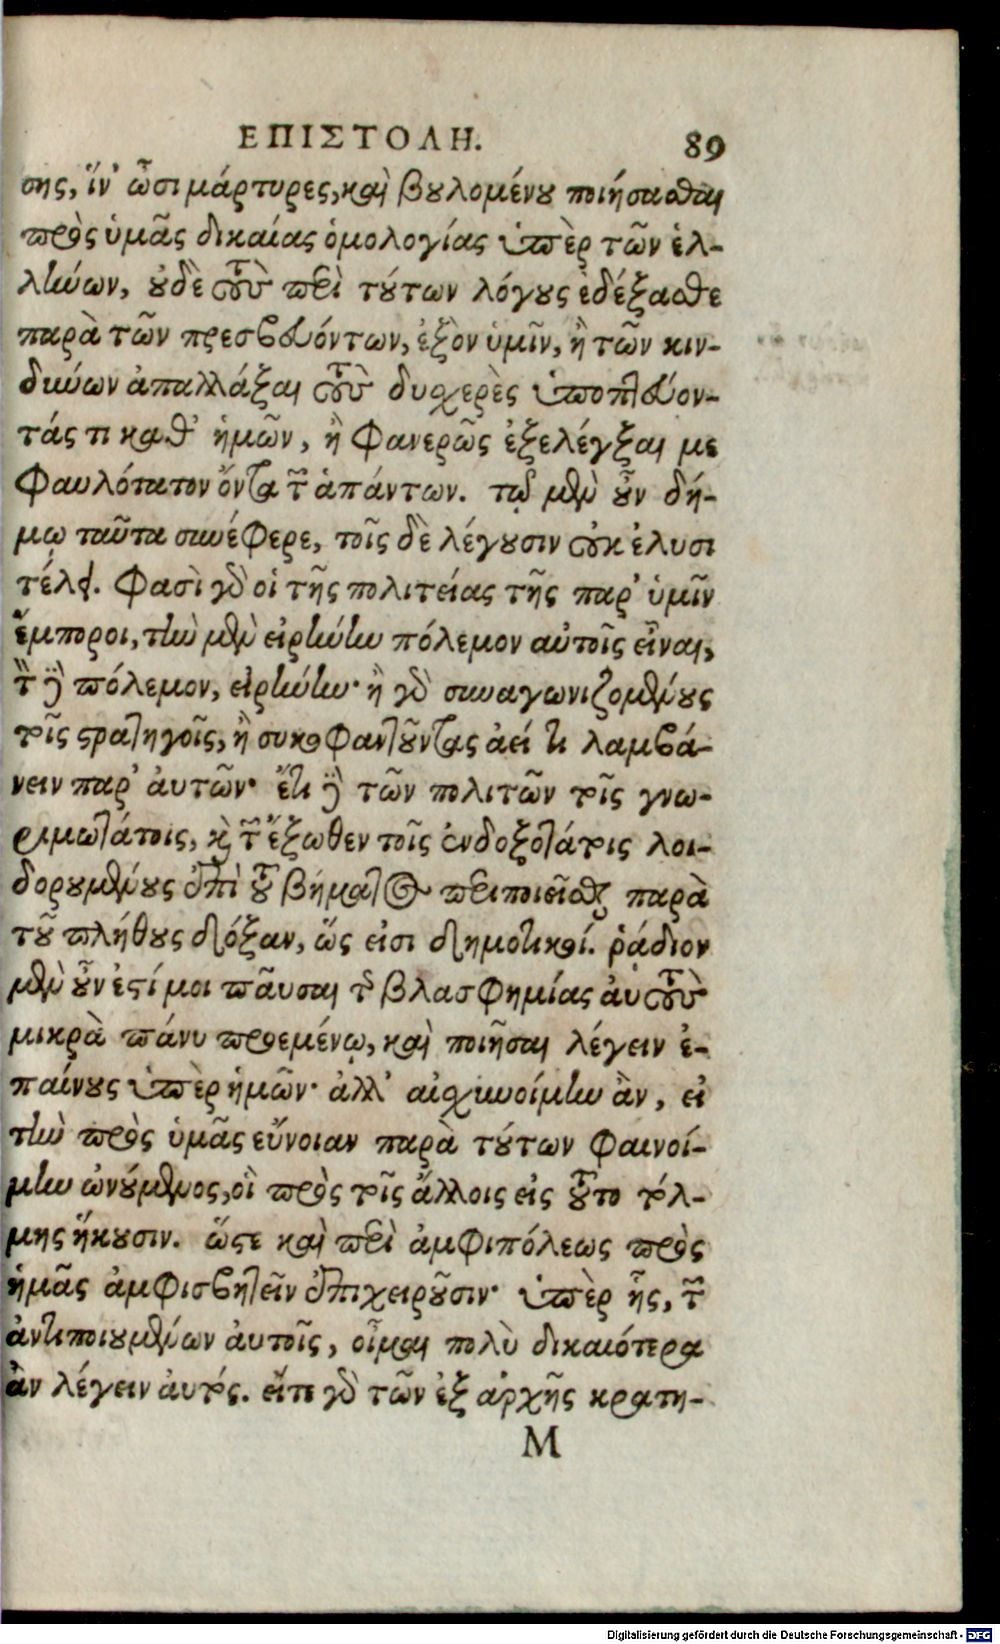 ΕΠΙΣΤΟΛΗ. 89
σης, ἵν' ὦσι μάρτυρες, καὶ βουλομένου ποιήσασθαι
πρὸς ὑμᾶς δικαίας ὁμολογίας ὑπὲρ τῶν ἑλ-
λήνων, οὐδὲ τοὺς περὶ τούτων λόγους ἐδέξασθε
παρὰ τῶν πρεσβευόντων, ἐξὸν ὑμῖν, ἢ τῶν κιν-
δύνων ἀπαλλάξαι τοὺς δυχερὲς ὑποπτεύον-
τάς τι καθ' ἡμῶν, ἢ φανερῶς ἐξελέγξαι με
φαυλότατον ὄντα τῶν ἁπάντων. τῷ μὲν οὖν δή-
μῳ ταῦτα συνέφερε, τοῖς δὲ λέγουσιν οὐκ ἐλυσι
τέλει. φασὶ γὰρ οἱ τῆς πολιτείας τῆς παρ' ὑμῖν
ἔμποροι, τὴν μὲν εἰρήνην πόλεμον αὐτοῖς εἶναι,
τὸν δὲ πόλεμον, εἰρήνην· ἢ γὰρ συναγωνιζομένους
τοῖς στρατηγοῖς, ἢ συκοφαντοῦντας ἀεί τι λαμβά-
νειν παρ' αὐτῶν· ἔτι δὲ τῶν πολιτῶν τοῖς γνω-
ριμωτάτοις, καὶ τῶν ἔξωθεν τοῖς ἐνδοξοτάτοις λοι-
δορουμένους ἐπὶ τοῦ βήματος περιποιεῖσθαι παρὰ
τοῦ πλήθους δόξαν, ὥς εἰσι δημοτικοί. ῥάδιον
μὲν οὖν ἐστί μοι παῦσαι τῆς βλασφημίας αὐτοὺς
μικρὰ πάνυ προεμένῳ, καὶ ποιῆσαι λέγειν ἐ-
παίνους ὑπὲρ ἡμῶν· ἀλλ' αἰσχυνοίμην ἂν, εἰ
τὴν πρὸς ὑμᾶς εὔνοιαν παρὰ τούτων φαινοί-
μην ὠνούμενος, οἳ πρὸς τοῖς ἄλλοις εἰς τοῦτο τόλ-
μης ἥκουσιν. ὥστε καὶ περὶ ἀμφιπόλεως πρὸς
ἡμᾶς ἀμφισβητεῖν ἐπιχειροῦσιν· ὑπὲρ ἧς, τῶν
ἀντιποιουμένων αὐτοῖς, οἶμαι πολὺ δικαιότερα
ἂν λέγειν αὐτός. εἴτε γὰρ τῶν ἐξ ἀρχῆς κρατη-
M
Digitalisierung gefördert durch die Deutsche Forschungsgemeinschaft - DFG